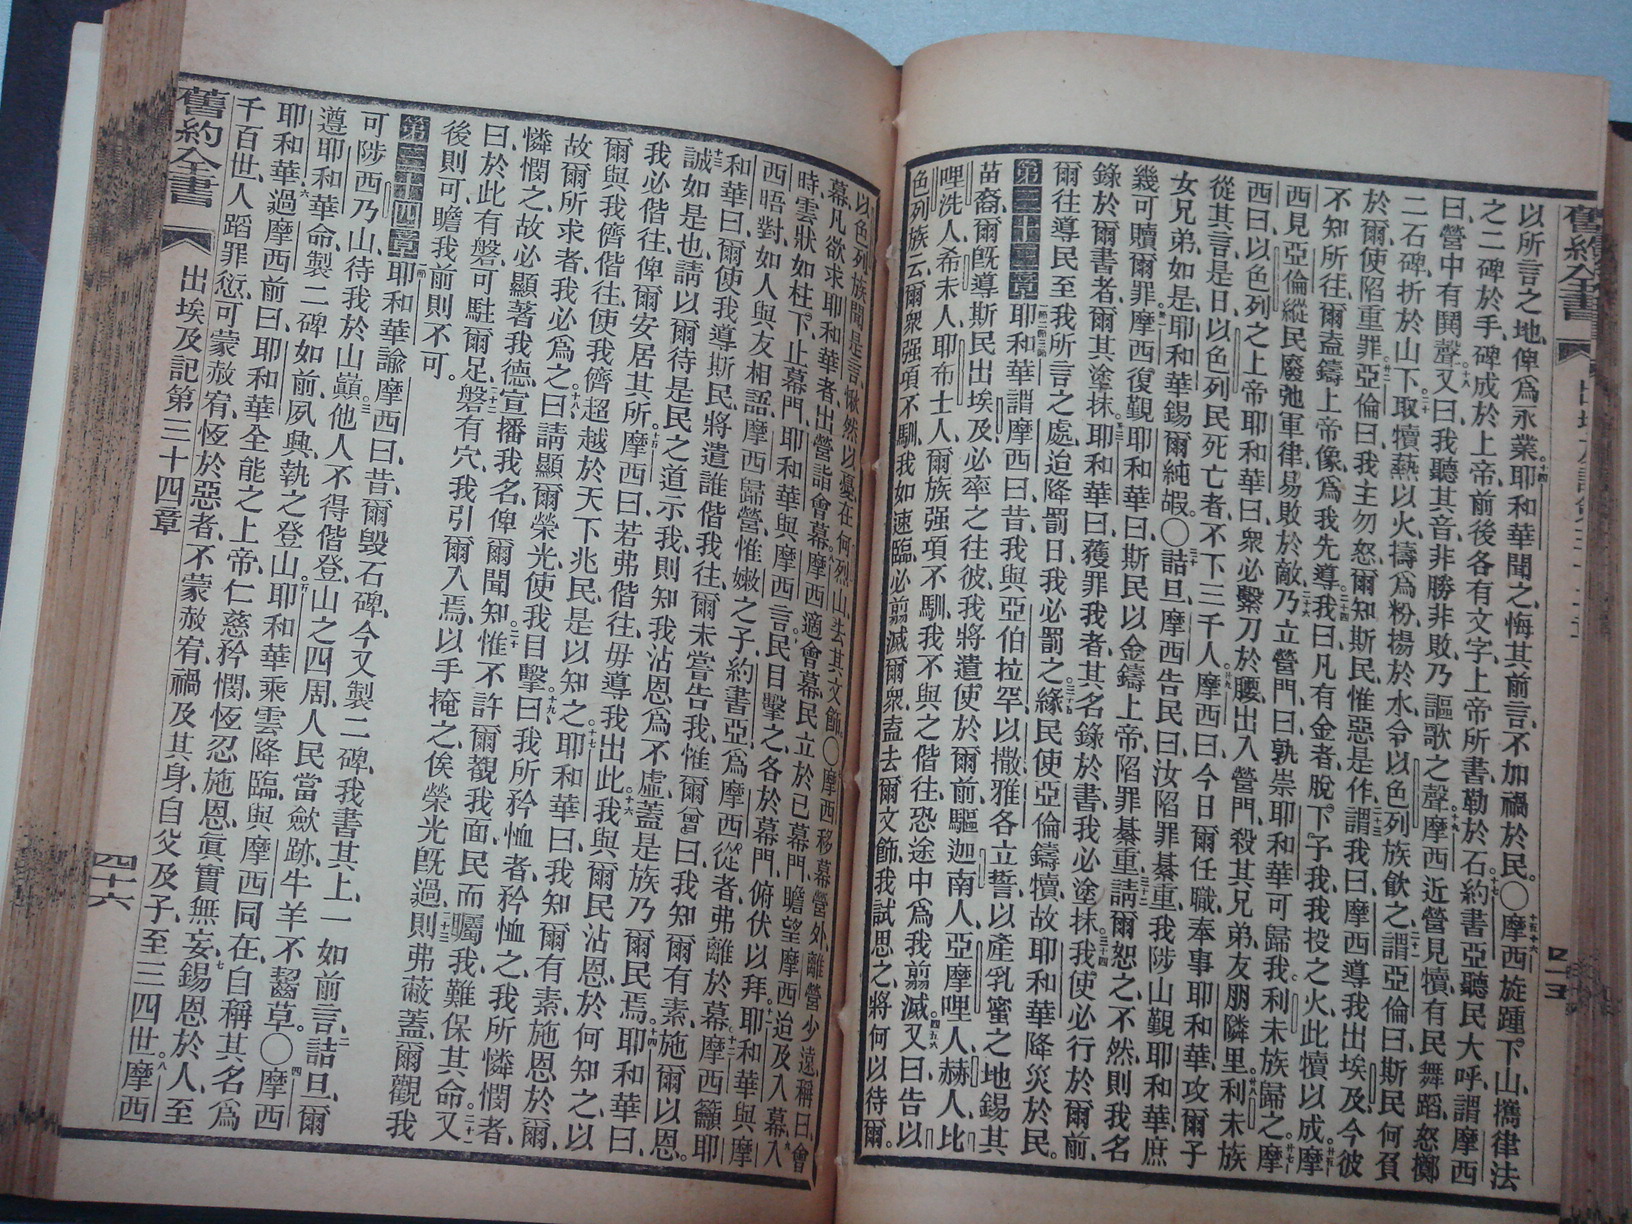 以所言之地、俾爲永業。十四耶和華聞之、悔其前言、不加禍於民。〇十五十六摩西旋踵下山、攜律法
之二碑於手、碑成於上帝、前後各有文字、上帝所書、勒於石。十七約書亞聽民大呼、謂摩西
曰、營中有鬨聲。十八又曰、我聽其音、非勝非敗、乃謳歌之聲。十九摩西近營、見犢、有民舞蹈、怒擲
二石碑、折於山下。二十取犢爇以火、擣爲粉、揚於水、令以色列族飲之。二一謂亞倫曰、斯民何負
於爾、使陷重罪。廿二亞倫曰、我主勿怒、爾知斯民、惟惡是作。二十三謂我曰、摩西導我出埃及、今彼
不知所往、爾盍鑄上帝像、爲我先導。二十四我曰、凡有金者、脫下予我、我投之火、此犢以成。廿五摩
西見亞倫縱民、廢弛軍律、易敗於敵。二十六乃立營門、曰、孰崇耶和華、可歸我、利未族歸之。廿七摩
西曰、以色列之上帝耶和華曰、衆必繫刀於腰、出入營門、殺其兄弟、友朋、隣里。廿八利未族
從其言、是日以色列民死亡者、不下三千人。廿九摩西曰、今日爾任職奉事耶和華、攻爾子
女兄弟、如是耶和華錫爾純嘏。〇三十詰旦、摩西告民曰、汝陷罪綦重、我陟山覲耶和華、庶
幾可贖爾罪。摩西復覲耶和華曰、斯民以金鑄上帝、陷罪綦重、三十二請爾恕之、不然、則我名
錄於爾書者、爾其塗抹。耶和華曰、獲罪我者、其名錄於書、我必塗抹。三十四我使必行於爾前、
爾往導民、至我所言之處、迨降罰日、我必罰之。三十五緣民使亞倫鑄犢、故耶和華降災於民。
第三十三章一節二節三節耶和華謂摩西曰、昔我與亞伯拉罕、以撒、雅各立誓、以產乳蜜之地、錫其
苗裔、爾旣導斯民出埃及、必率之往彼、我將遣使於爾前、驅迦南人、亞摩哩人、赫人、比
哩洗人、希未人、耶布士人、爾族强項不馴、我不與之偕往、恐途中爲我翦滅。四五六又曰、告以
色列族云、爾衆强項不馴、我如速臨、必翦滅爾衆、盍去爾文飾、我試思之、將何以待爾。
以色列族聞是言、愀然以憂、在何烈山、去其文飾。〇摩西移幕營外、離營少遠、稱曰、會
幕、凡欲求耶和華者、出營詣會幕。摩西適會幕、民立於己幕門、瞻望摩西、迨及入幕、九入
時、雲狀如柱、下止幕門、耶和華與摩西言、民目擊之、各於幕門、俯伏以拜。耶和華與摩
西晤對、如人與友相語、摩西歸營、惟嫩之子約書亞、爲摩西從者、弗離於幕。十二摩西籲耶
和華曰、爾使我導斯民、將遣誰偕我往、爾未嘗告我、惟爾曾曰、我知爾有素、施爾以恩、
誠如是也、請以爾待是民之道示我、則知我沾恩、爲不虛、蓋是族乃爾民焉。十四耶和華曰、
我必偕往、俾爾安居其所。十五摩西曰、若弗偕往、毋導我出此。十六我與爾民沾恩、於何知之、以
爾與我儕偕往、使我儕超越於天下兆民、是以知之。十七耶和華曰、我知爾有素、施恩於爾、
故爾所求者、我必爲之。十八曰、請顯爾榮光、使我目擊。十九曰、我所矜恤者、矜恤之、我所憐憫者、
憐憫之、故必顯著我德、宣播我名、俾爾聞知、二十惟不許爾觀我面、民而矚我、難保其命。二十一又
曰、於此有磐、可駐爾足、二十二磐有穴、我引爾入焉、以手掩之、俟榮光旣過、二十三則弗蔽蓋、爾觀我
後則可、瞻我前則不可。
第三十四章一節耶和華諭摩西曰、昔爾毀石碑、今又製二碑、我書其上、一如前言、二詰旦爾
可陟西乃山、待我於山巔、三他人不得偕登、山之四周、人民當歛跡、牛羊不齧草。〇四摩西
遵耶和華命、製二碑如前、夙興執之登山。五耶和華乘雲降臨、與摩西同在、自稱其名、爲
耶和華。六過摩西前曰、耶和華全能之上帝、仁慈矜憫、恆忍施恩、眞實無妄、七錫恩於人、至
千百世、人蹈罪愆、可蒙赦宥、恆於惡者、不蒙赦宥、禍及其身、自父及子、至三四世。八摩西
舊約全書
出埃及記第三十四章
四十六